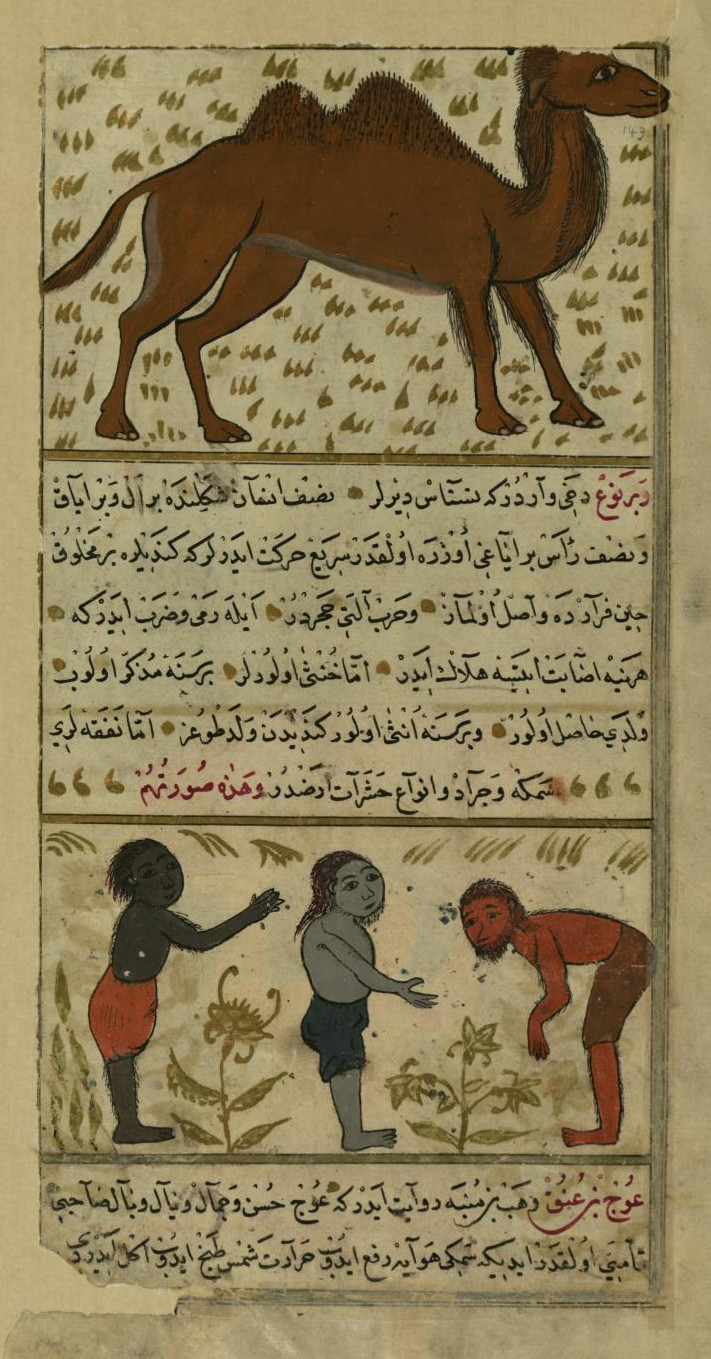 143
وبر نوع دخی واردر که نسناس دیرلر نصف انسان شکلنده بر ال وبر ایاق
ونصف رأس بر ایاغی اوزره اولقدر سریع حرکت ایدرلر که کندیلره بر مخلوق
حین فرارده واصل اولماز وحرب آلتی حجردر ایله رمی وضرب ایدر که
هر نیه اصابت ایتسه هلاك ایدر اما خنثی اولورلر بر سنه مذکر اولوب
ولدی حاصل اولور وبر سنه انثی اولور کندیدن ولد طوغر اما نفقه لری
سمکه وجراد وانواع حشرات ارضدر وهذه صورتهم
عوج بن عنق وهب بن منبه روایت ایدر که عوج حسن وجمال وبال صاحبی
اولقدر ایدیکه سمکی هوایه رفع ایدوب حرارت شمس طبخ ایدوب اکل ایدردی